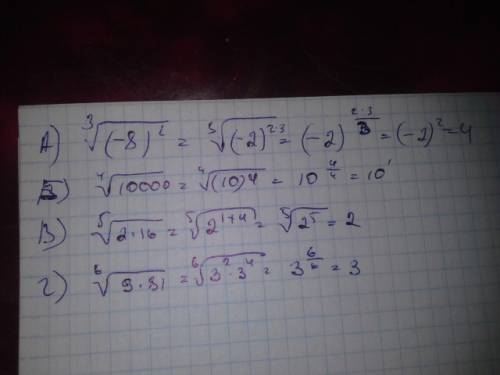 А) ∛(-8)² = ∛(-2)^(2·3) = (-2)^(2·3/3) = (-2)² = 4
Б) ⁴√10000 = ⁴√(10)4 = 10^(4/4) = 10¹
В) ⁵√2·16 = ⁵√2^(1+4) = ⁵√2⁵ = 2
Г) ⁶√9·81 = ⁶√3²·3⁴ = 3^(6/6) = 3